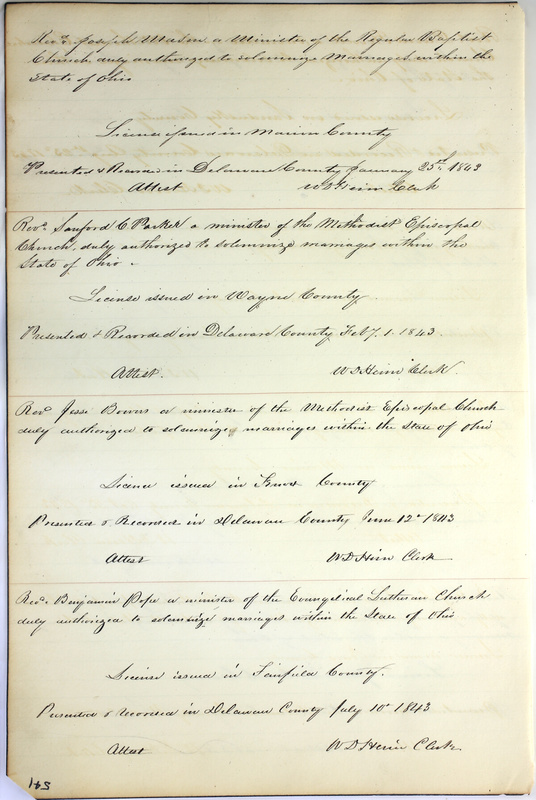 Revd. Joseph Mason a Minister of the Regular Baptist
Church, duly authorized to solemnize Marriages within the
State of Ohio
License issued in Marion County
Presented & Recorded in Delaware County January 25th, 1843
Attest W D Heim Clerk
Revd. Sanford C Parker a minister of the Methodist Episcopal
Church, duly authorized to solemnize marriages within the
State of Ohio -
License issued in Wayne County.
Presented & Recorded in Delaware County Feby. 1. 1843.
Attest. W D Heim Clerk.
Revd Jesse Bowers a minister of the Methodist Episcopal Church
duly authorized to solemnize marriages within the State of Ohio
License issued in Knox County
Presented & Recorded in Delaware County June 12th 1843
Attest W D Heim Clerk
Revd. Benjamin Pope a minister of the Evangelical Lutheran Church
duly authorized to solemnize marriages within the State of Ohio
License issued in Fairfield County.
Presented & recorded in Delaware County July 10th 1843
Attest W D Heim Clerk
541